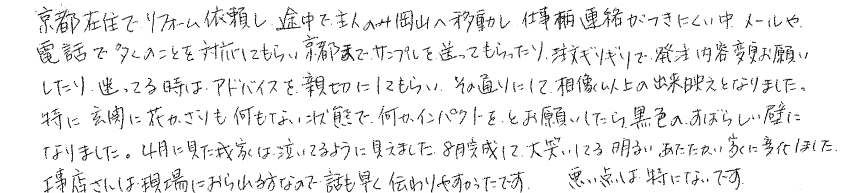 京都在住でリフォーム依頼し、途中で主人のみ岡山へ移動し仕事柄連絡がつきにくい中メールや
電話で多くのことを対応してもらい京都までサンプルを送ってもらったり、注文ギリギリで、発注内容変更お願い
したり、迷ってる時は、アドバイスを、親切にしてもらい、その通りにして、想像以上の出来映えとなりました。
特に玄関に花かざりも何もない状態で、何かインパクトを、とお願いしたら、黒色の、すばらしい壁に
なりました。4月に見た我家は、泣いてるように見えました。8月完成して、大笑いしてる明るいあたたかい家に変化しました。
工事店さんは現場におられる方なので話も早く伝わりやすかったです。 悪い点は特にないです。